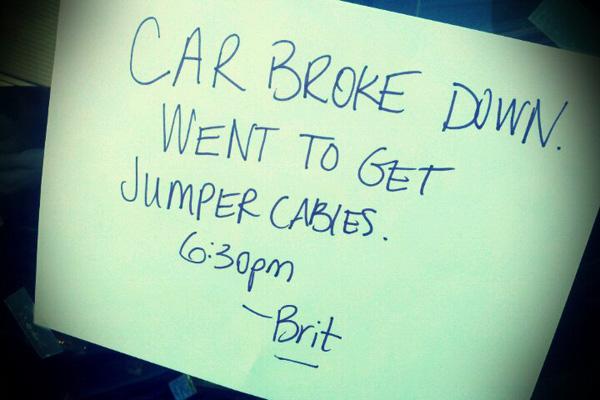 CAR BROKE DOWN.
WENT TO GET
JUMPER CABLES.
6:30pm
—Brit